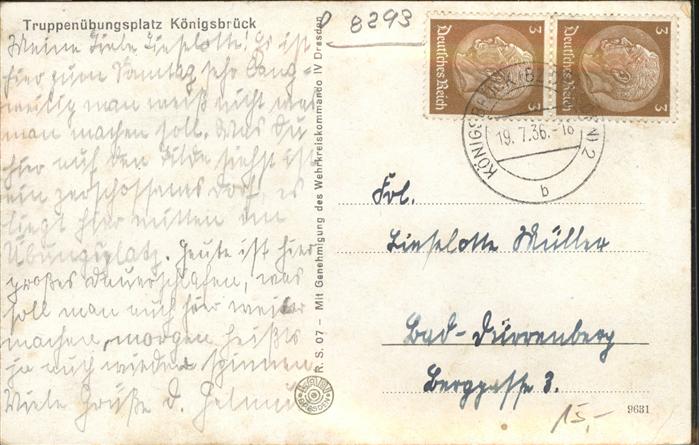 Truppenübungsplatz Königsbrück
Meine liebe Lieselotte! Es ist
hier zum Sonntag sehr lang-
weilig man weiß nicht was
man machen soll. Was Du
hier auf den Bilde siehst ist
ein zerschossenes Dorf, es
liegt hier mitten im
Übungsplatz. Heute ist hier
großes Dauerschlafen, was
soll man auch hier weiter
machen, morgen heißts
ja auch wieder spinnen
Viele Grüße d. Helmut
R. S. 07 – Mit Genehmigung des Wehrkreiskommando IV Dresden
8293
Deutsches Reich
3
3
Deutsches Reich
3
3
19.7.36.-16
2
b
Frl.
Lieselotte Müller
Bad-Dürrenberg
Berggasse 3.
DRESDEN
15,-
9631